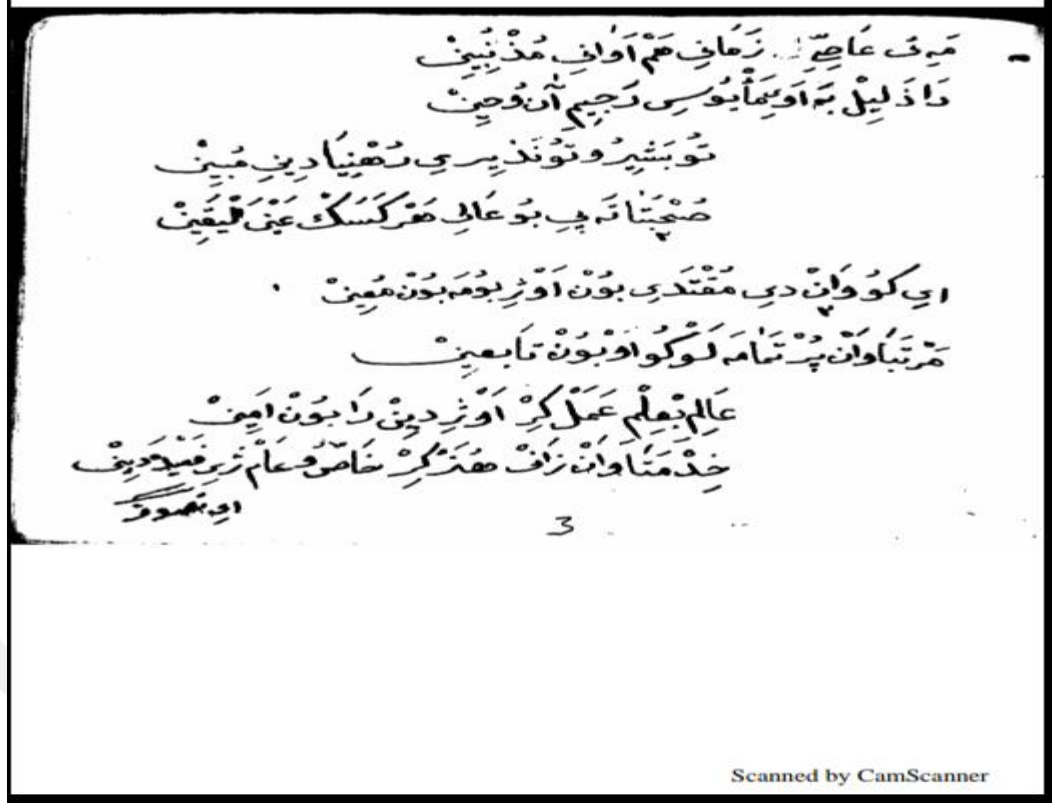 مَهِ ف عَاصِیِّ زَمَانِ هَمْ اَوَانِ مُذْنِبِينْ
دَا ذَلِيلْ بَه اَو بِمَأْيُوسِی رَجِيمِ آنْ وُحِينْ
تُو بَشِيرُ وتُونَذِيرِی رُهْنِیَا دِينِ مُبِينْ
صُنْحَبَتَاتَه پِی بُو عَالِی هَرْ كَسَكْ عَيْنَ لْيَقِينْ
اِی كُو وَانْ دِی مُقْتَدَی بُونْ اَوْ ژِ بُومَه بُونْ مُعِينْ
مَرْتَبَا وَانْ پُرْ تَمَامَه لَوْ كُو اَوْ بُونْ تَابِعِينْ
عَالِم بْعِلْم عَمَلْ كِرْ اَوْ ژِ دِينْ رَا بُونْ اَمِينْ
خِدْمَتَا وَانْ زَافْ هُنَرْ كِرْ خَاصُّ وعَامْ ژِیرَ
اِی تصوف
3
Scanned by CamScanner